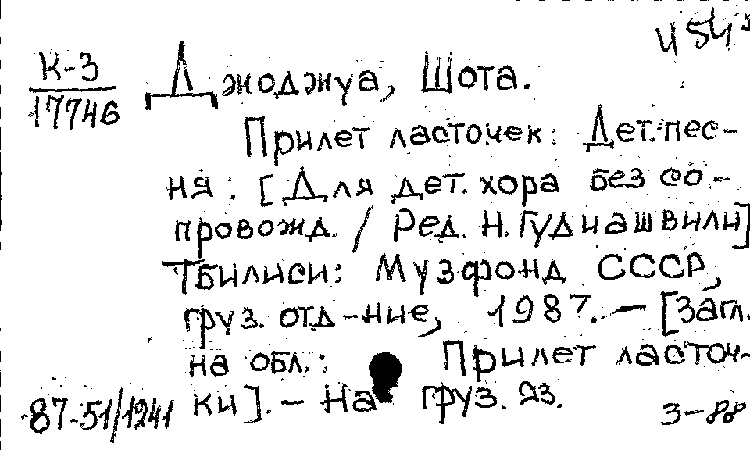 К-3
17746
Джоджуа, Шота.
Прилет ласточек: Дет. пес-
ня: [Для дет. хора без со-
провожд. / Ред. Н. Гудиашвили]
Тбилиси: Музфонд СССР,
груз. отд-ние, 1987. — [Загл.
на обл.: Прилет ласточ-
ки]. — На груз. яз.
87-51/1241
3-88